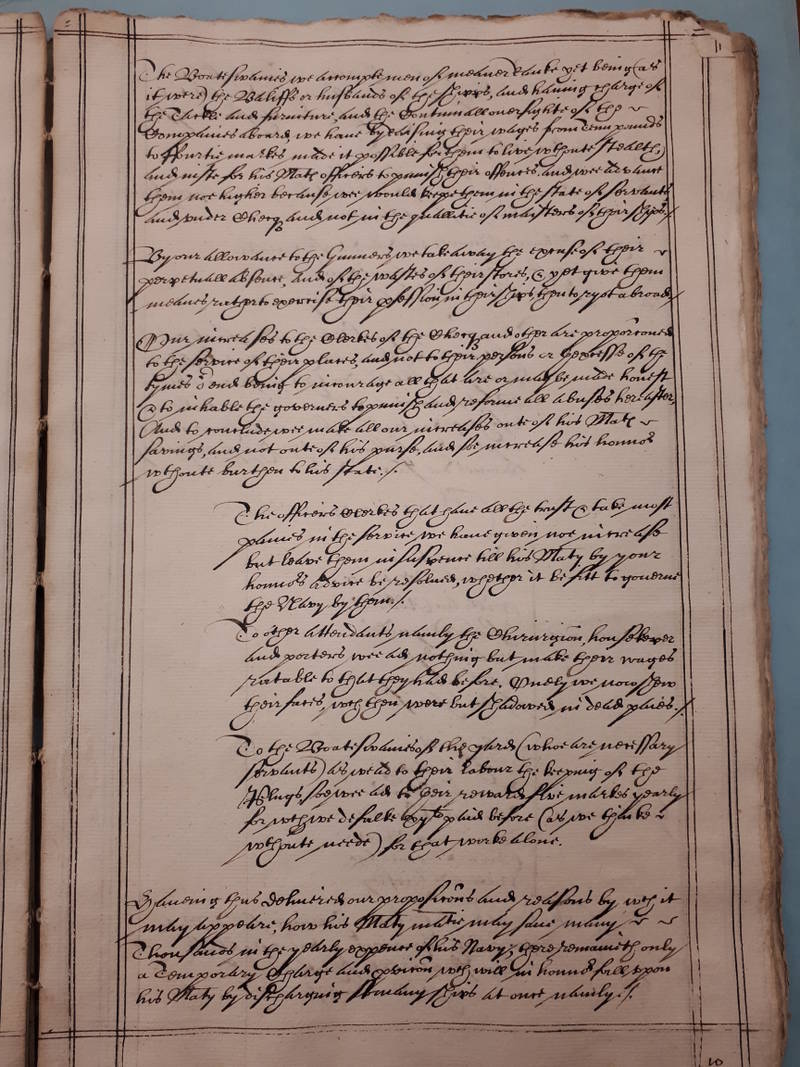 The Boateswaines we accompte men of meaner ranke yet being (as
it were) the Baliffs or husbands of the shipps, and having charge of
the Tackle and furniture, and the Continuall oversighte of the
Companies aboard, we have by raising their wages from Tenn pounds
to ffourtie markes made it possible for them to live wthoute stealth,
and iuste for his Mats officers to punish their offences, and wee advance
them noe higher because wee would keepe them in the state of servants
and under Checq and not in the quallitie of maisters of their shipps./
By our allowance to the Gunners we take away the excuse of their
perpetuall absence, and of the wastes of their stores, & yet give them
meanes rather to exercise their pfession in their shipps then to ryot abroad./
Our increases to the Clerkes of the Checq and other are proportioned
to the service of their places and not to their persons or excesse of the
tymes end being to incourage all that are or may be made honest
& to inhable the governers to punish and reforme all abuses hereafter,
And to conclude wee make all our increases oute of his Mats
savings, and not oute of his purse, and soe increase his honnor
wthoute burthen to his state./.
The officers Clerkes that have all the trust & take most
paines in the service we have given noe increase
but leave them in suspence till his Maty by your
honnors advice be resolved, whether it be fitt to governe
the Navy by them./.
To other attendants namly the Chirurgion, housekeper
and porters wee ad nothing but make their wages
ratable to that they had before, Onely we now shew
their faces, wch then were but shadowed in dead paies./.
To the Boateswaines of the yards (who are necessary
servants) as we ad to their labour the keeping of the
Plugs, soe wee ad to their reward five markes yearly
for wch we defalke paid before (as we thinke
wthoute neede) for that worke alone.
Haveing thus delivered our propositions and reasons by wch it
may appeare, how his Maty may save many
Thousands in the yearly expence of his Navy, there remaineth only
a Temporary Charge and wch will in honnor fall upon
his Maty by discharging soe many shipps at once namly./.
10